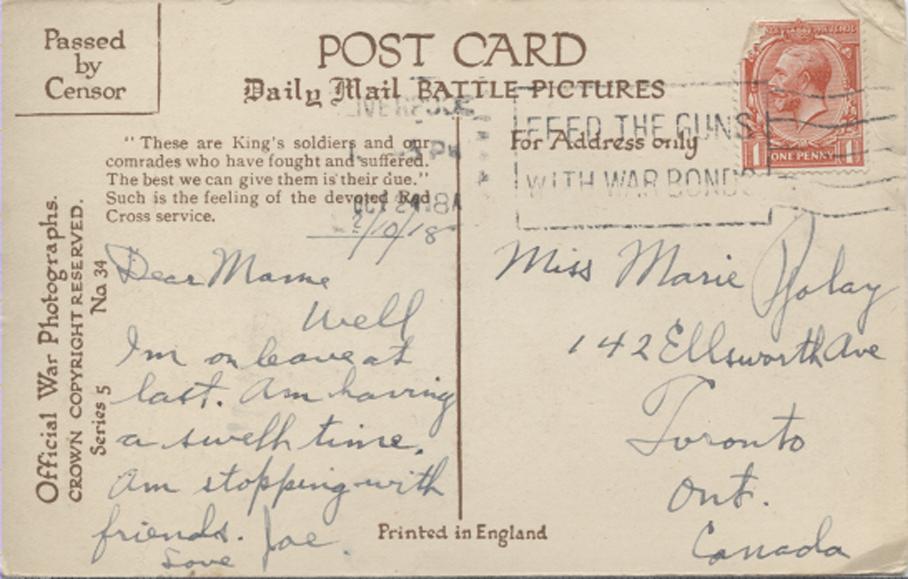 Passed
by
Censor
POST CARD
Daily Mail BATTLE PICTURES
LIVERPOOL
FEED THE GUNS
WITH WAR BONDS
ONE PENNY
1 1
For Address only
" These are King's soldiers and our
comrades who have fought and suffered.
The best we can give them is their due."
Such is the feeling of the devoted Red
Cross service.
Official War Photographs.
CROWN COPYRIGHT RESERVED.
Series 5 No. 34
2/10/18
Dear Mame
Well
I'm on leave at
last. Am having
a swell time.
Am stopping with
friends.
Love Joe.
Miss Marie
142 Ellsworth Ave
Toronto
Ont.
Canada
Printed in England